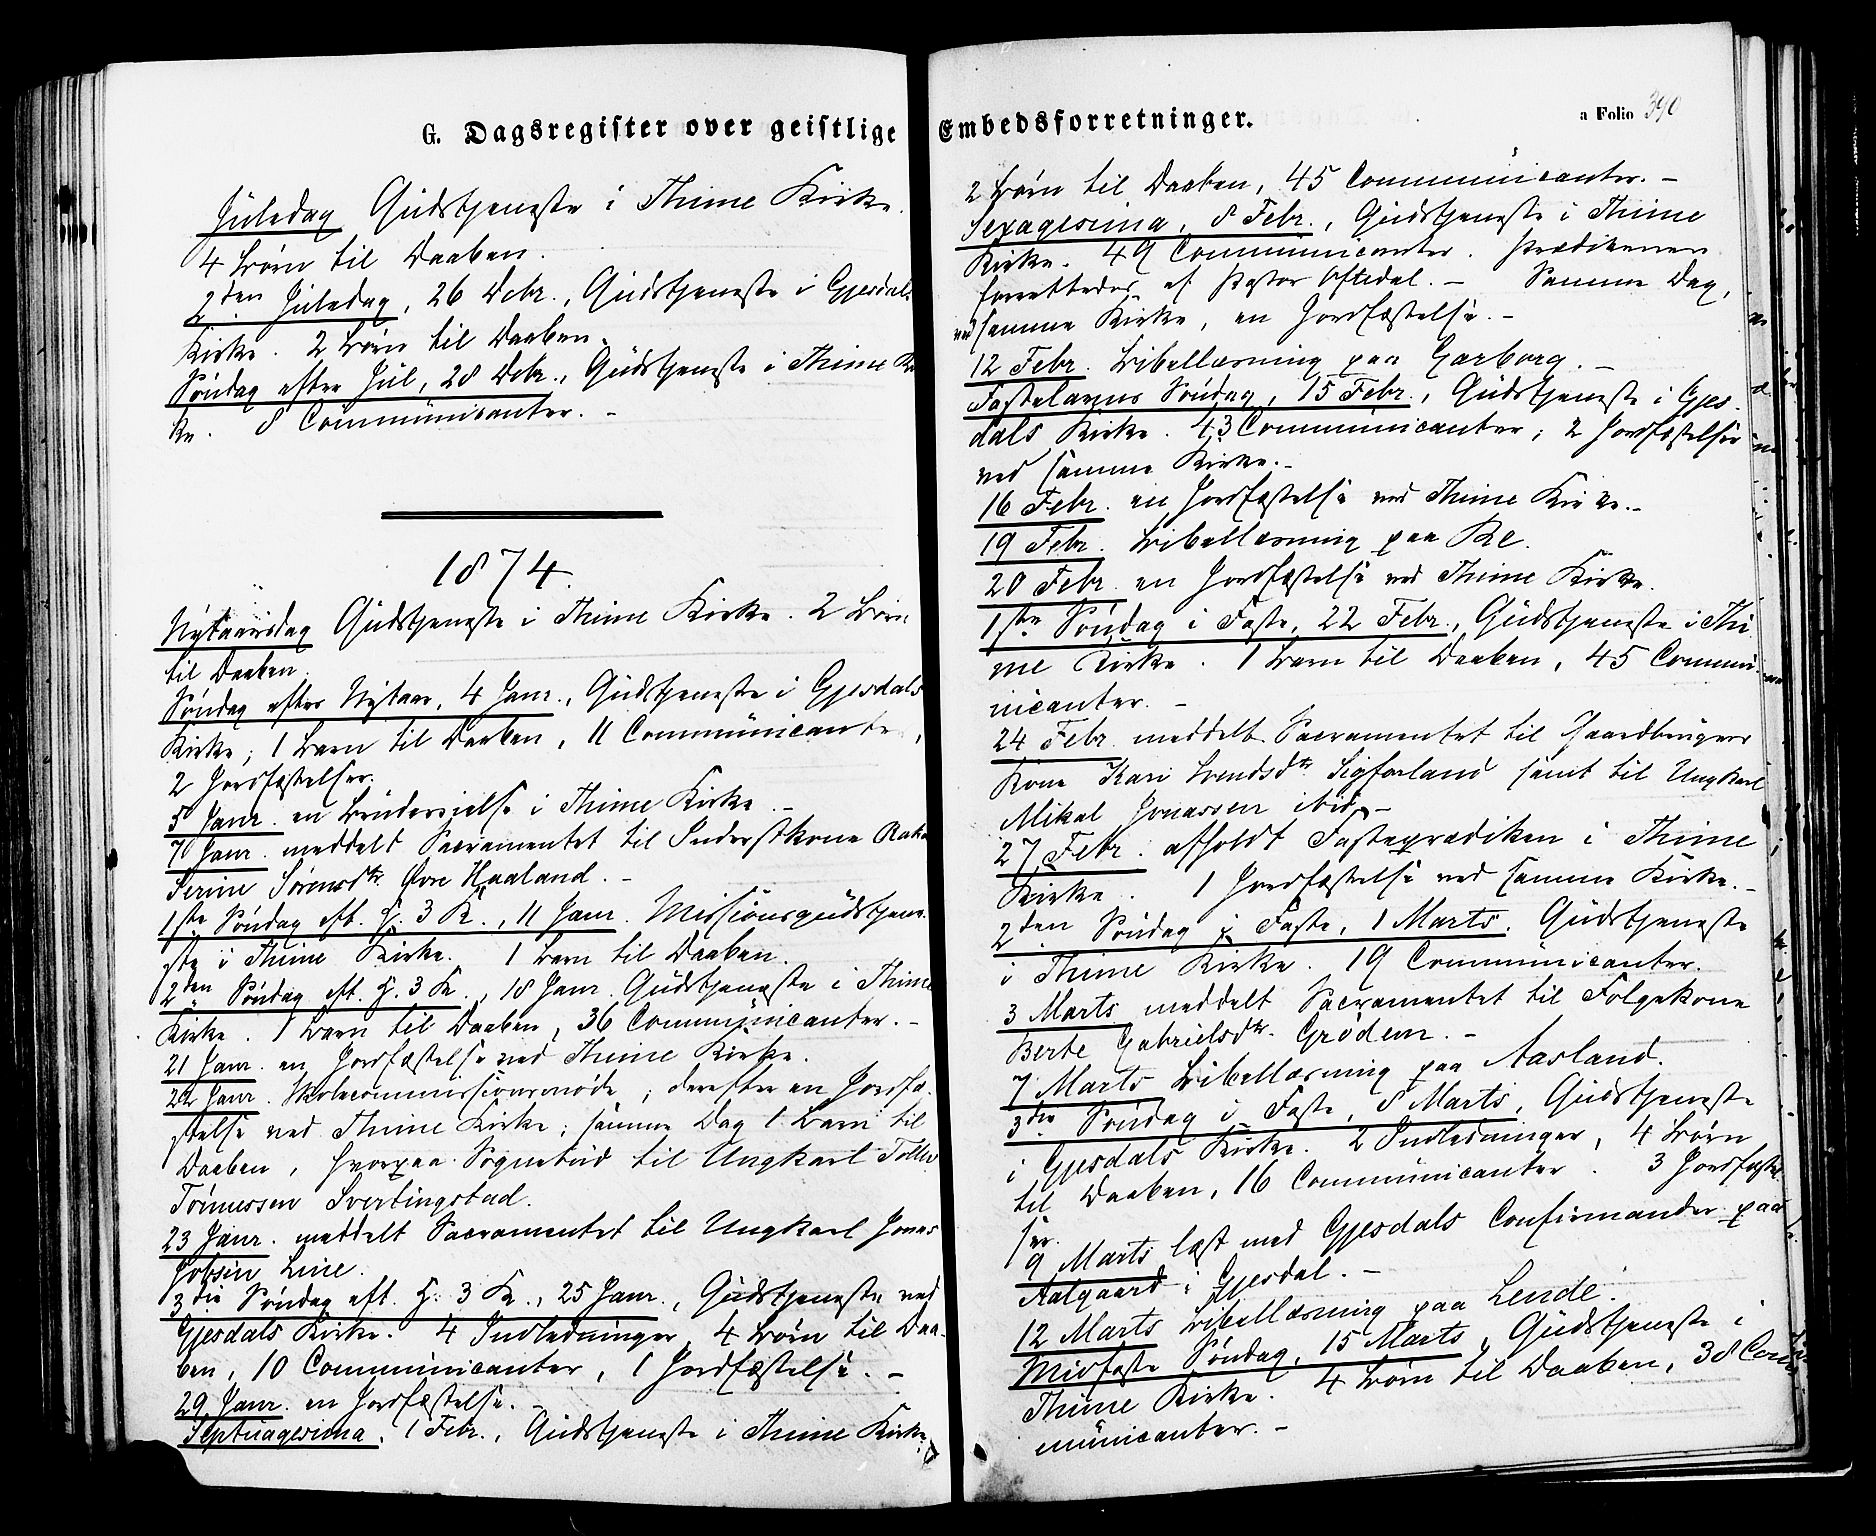 G. Dagsregister over geistlige
Juledag Gudstjeneste i Thime Kirke.
4 Børn til Daaben.
2den Juledag, 26 Debr., Gudstjeneste i Gjesdals
Kirke. 2 Børn til Daaben.
Søndag efter Jul, 28 Debr., Gudstjeneste i Thime Kir
ke. 8 Communicanter. -
1874.
Nytaarsdag Gudstjeneste i Thime Kirke. 2 Børn
til Daaben.
Søndag efter Nytaar, 4 Janr., Gudstjeneste i Gjesdals
Kirke; 1 Barn til Daaben, 11 Communicanter,
2 Jordfæstelser.
5 Janr. en Brudevielse i Thime Kirke. -
7 Janr. meddelt Sacramentet til Inderstkone
Serine Sørensdtr. Øvre Haaland. -
1ste Søndag eft. H. 3 K., 11 Janr. Missionsgudstjene-
ste i Thime Kirke. 1 Barn til Daaben.
2den Søndag eft. H. 3 K., 18 Janr. Gudstjeneste i Thime
Kirke. 1 Barn til Daaben, 36 Communicanter. -
21 Janr. en Jordfæstelse ved Thime Kirke.
22 Janr. Skolecommissionsmøde; derefter en Jordfæ-
stelse ved Thime Kirke; samme Dag 1 Barn til
Daaben, hvorpaa Sognebud til Ungkarl
Tønnessen Svertingstad.
23 Janr. meddelt Sacramentet til Ungkarl Jonas
Line.
3die Søndag eft. H. 3 K., 25 Janr., Gudstjeneste ved
Gjesdals Kirke. 4 Indledninger, 4 Børn til Daa-
ben, 10 Communicanter, 1 Jordfæstelse. -
29 Janr. en Jordfæstelse. -
Septuagesima, 1 Febr., Gudstjeneste i Thime Kirke,
Embedsforretninger.
a Folio 390
2 Børn til Daaben, 45 Communicanter. -
Sexagesima, 8 Febr., Gudstjeneste i Thime
Kirke. 49 Communicanter. Prædikenen
forrettedes af Pastor Oftedal. - Samme Dag,
ved samme Kirke, en Jordfæstelse. -
12 Febr. Bibellæsning paa Garborg. -
Fastelavns Søndag, 15 Febr., Gudstjeneste i Gjes-
dals Kirke. 43 Communicanter; 2 Jordfæstelser
ved samme Kirke. -
16 Febr. en Jordfæstelse ved Thime Kirke. -
19 Febr. Bibellæsning paa Re.
20 Febr. en Jordfæstelse ved Thime Kirke.
1ste Søndag i Faste, 22 Febr., Gudstjeneste i Thi-
me Kirke. 1 Barn til Daaben, 45 Commu-
nicanter. -
24 Febr. meddelt Sacramentet til Gaardbrugers
Kone Kari Svendsdtr. Sigforland samt til Ungkarl
Mikal Jonassen ibid. -
27 Febr. afholdt Fasteprædiken i Thime
Kirke. 1 Jordfæstelse ved samme Kirke. -
2den Søndag i Faste, 1 Marts. Gudstjeneste
i Thime Kirke. 19 Communicanter.
3 Marts meddelt Sacramentet til Folgekone
Berte Gabrielsdtr. Grødem. -
7 Marts Bibellæsning paa Aasland.
3die Søndag i Faste, 8 Marts, Gudstjeneste
i Gjesdals Kirke. 2 Indledninger, 4 Børn
til Daaben, 16 Communicanter. 3 Jordfæstel-
ser.
9 Marts læst med Gjesdals Confirmander paa
Aalgaard i Gjesdal. -
12 Marts Bibellæsning paa Lende.
Midfaste Søndag, 15 Marts, Gudstjeneste i
Thime Kirke. 4 Børn til Daaben, 38 Com-
municanter. -